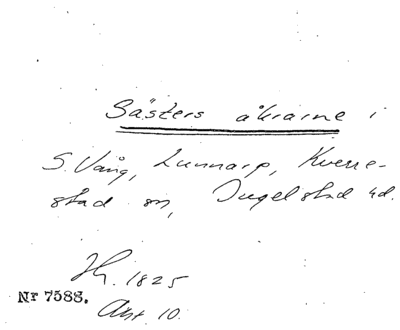 Såsters åkrarne i
S. Vång, Lunnarp, Kverre-
stad sn, Ingelstad hd.
Jh. 1825
Nr 7583.
Akt 10.